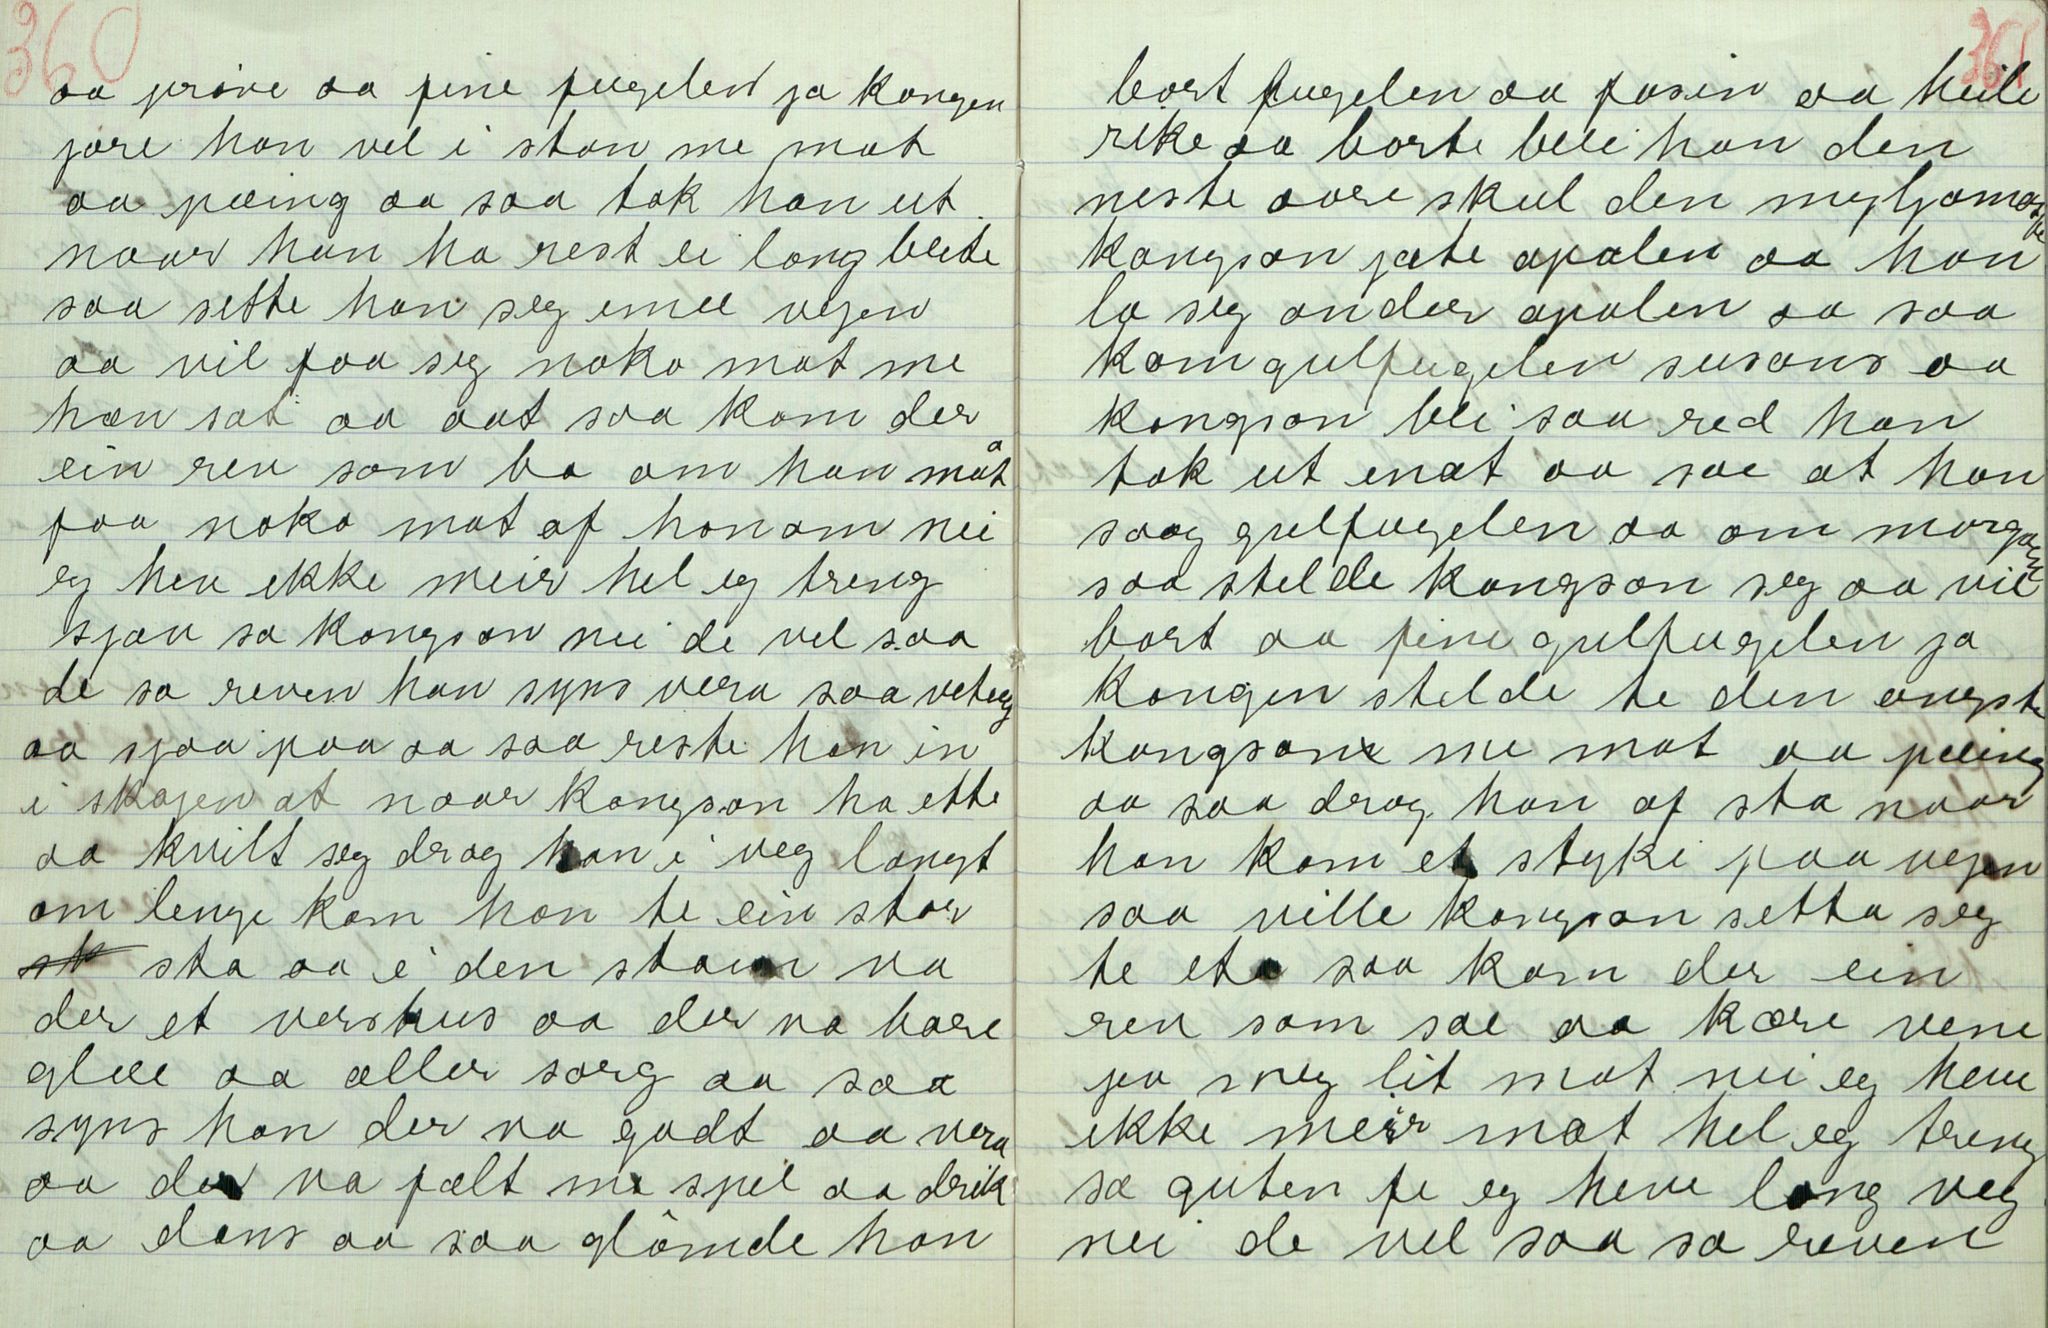 360
aa prøve aa fine fugelen ja kongen
jore han vel i stan me mat
aa pæing aa saa tok han ut
naar han ha rest ei lang blete
saa sette han seg imel vegen
aa vil faa seg noko mat me
han sat aa aat saa kom der
ein rev som ba om han måt
faa noko mat af honom nei
eg hev ikke meir hel eg treng
sjøv sa kongson nei de vel saa
de sa reven han syns vera saa veteg
aa sjaa paa aa saa reste han in
i skogen at naar kongson ha ette
aa kvilt seg drog han i veg langt
om lenge kom han te ein stor
sta aa i den staen va
der et vershus aa der va bare
glæe aa aller sorg aa saa
syns han der va godt aa vera
aa der va fælt me spel aa drik
aa dans aa saa glømde han
361
bort fugelen aa fasin aa heile
rike aa borte blei han den
neste aare skul den myljomaste
kongson jæte apalen aa han
la seg onder apalen aa saa
kom gulfugelen susans aa
kongson blei saa red han
tok ut enat aa sae at han
saag gulfugelen aa om morgaen
saa stelde kongson seg aa vil
bort aa fine gulfugelen ja
kongen stelde te den angste
kongson me mat aa pæing
aa saa drog han af sta naar
han kom et styke paa vegen
saa ville kongson setta seg
te eta saa kom der ein
rev som sae aa kære vene
ja meg lit mat nei eg heve
ikke meir mat hel eg treng
sa guten fe eg heve lang veg
nei de vel saa sa reven